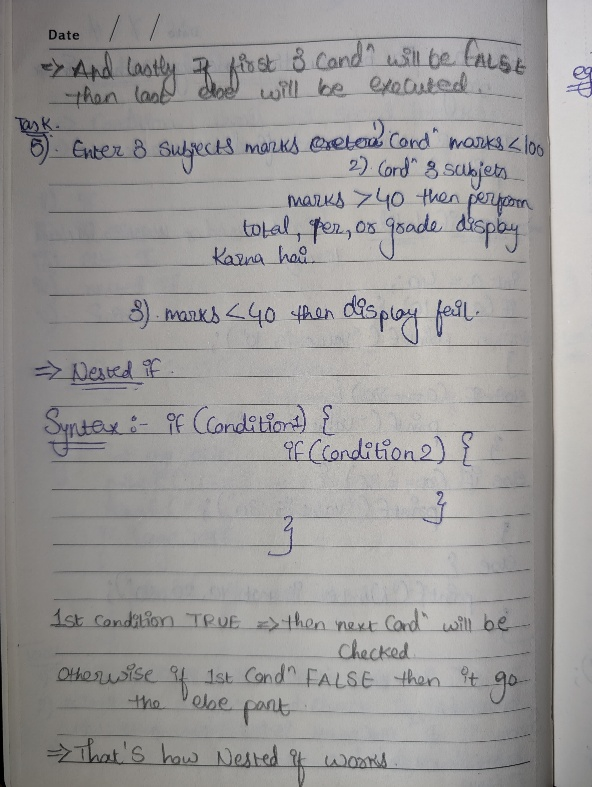 Date / /
=> And lastly If first 3 Condⁿ will be FALSE
then last else will be executed.
eg
Task.
5). Enter 3 subjects marks 1) Condⁿ marks <100
2). Condⁿ 3 subjets
marks >40 then perform
total, per, or grade display
Karna hai.
3). marks <40 then display feil.
=> Nested if.
Syntax :- if (Condition1) {
if (Condition 2) {
}
}
1st Condition TRUE => then next Condⁿ will be
Checked
Otherwise if 1st Condⁿ FALSE then it go
the else part.
=> That's how Nested if works.